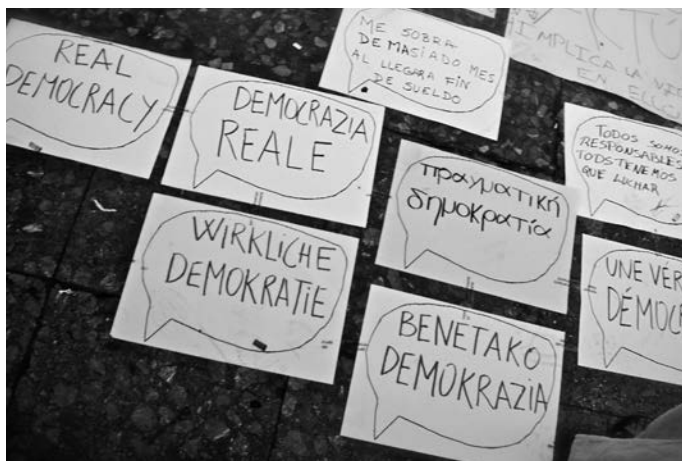 REAL
DEMOCRACY
DEMOCRAZIA
REALE
ME SOBRA
DEMASIADO MES
AL LLEGAR A FIN
DE SUELDO
IMPLICA LA
EN ELLO
TODOS SOMOS
RESPONSABLES
TODS TENEMOS
QUE LUCHAR
πραγματική
δημοκρατία
WIRKLICHE
DEMOKRATIE
UNE
BENETAKO
DEMOKRAZIA